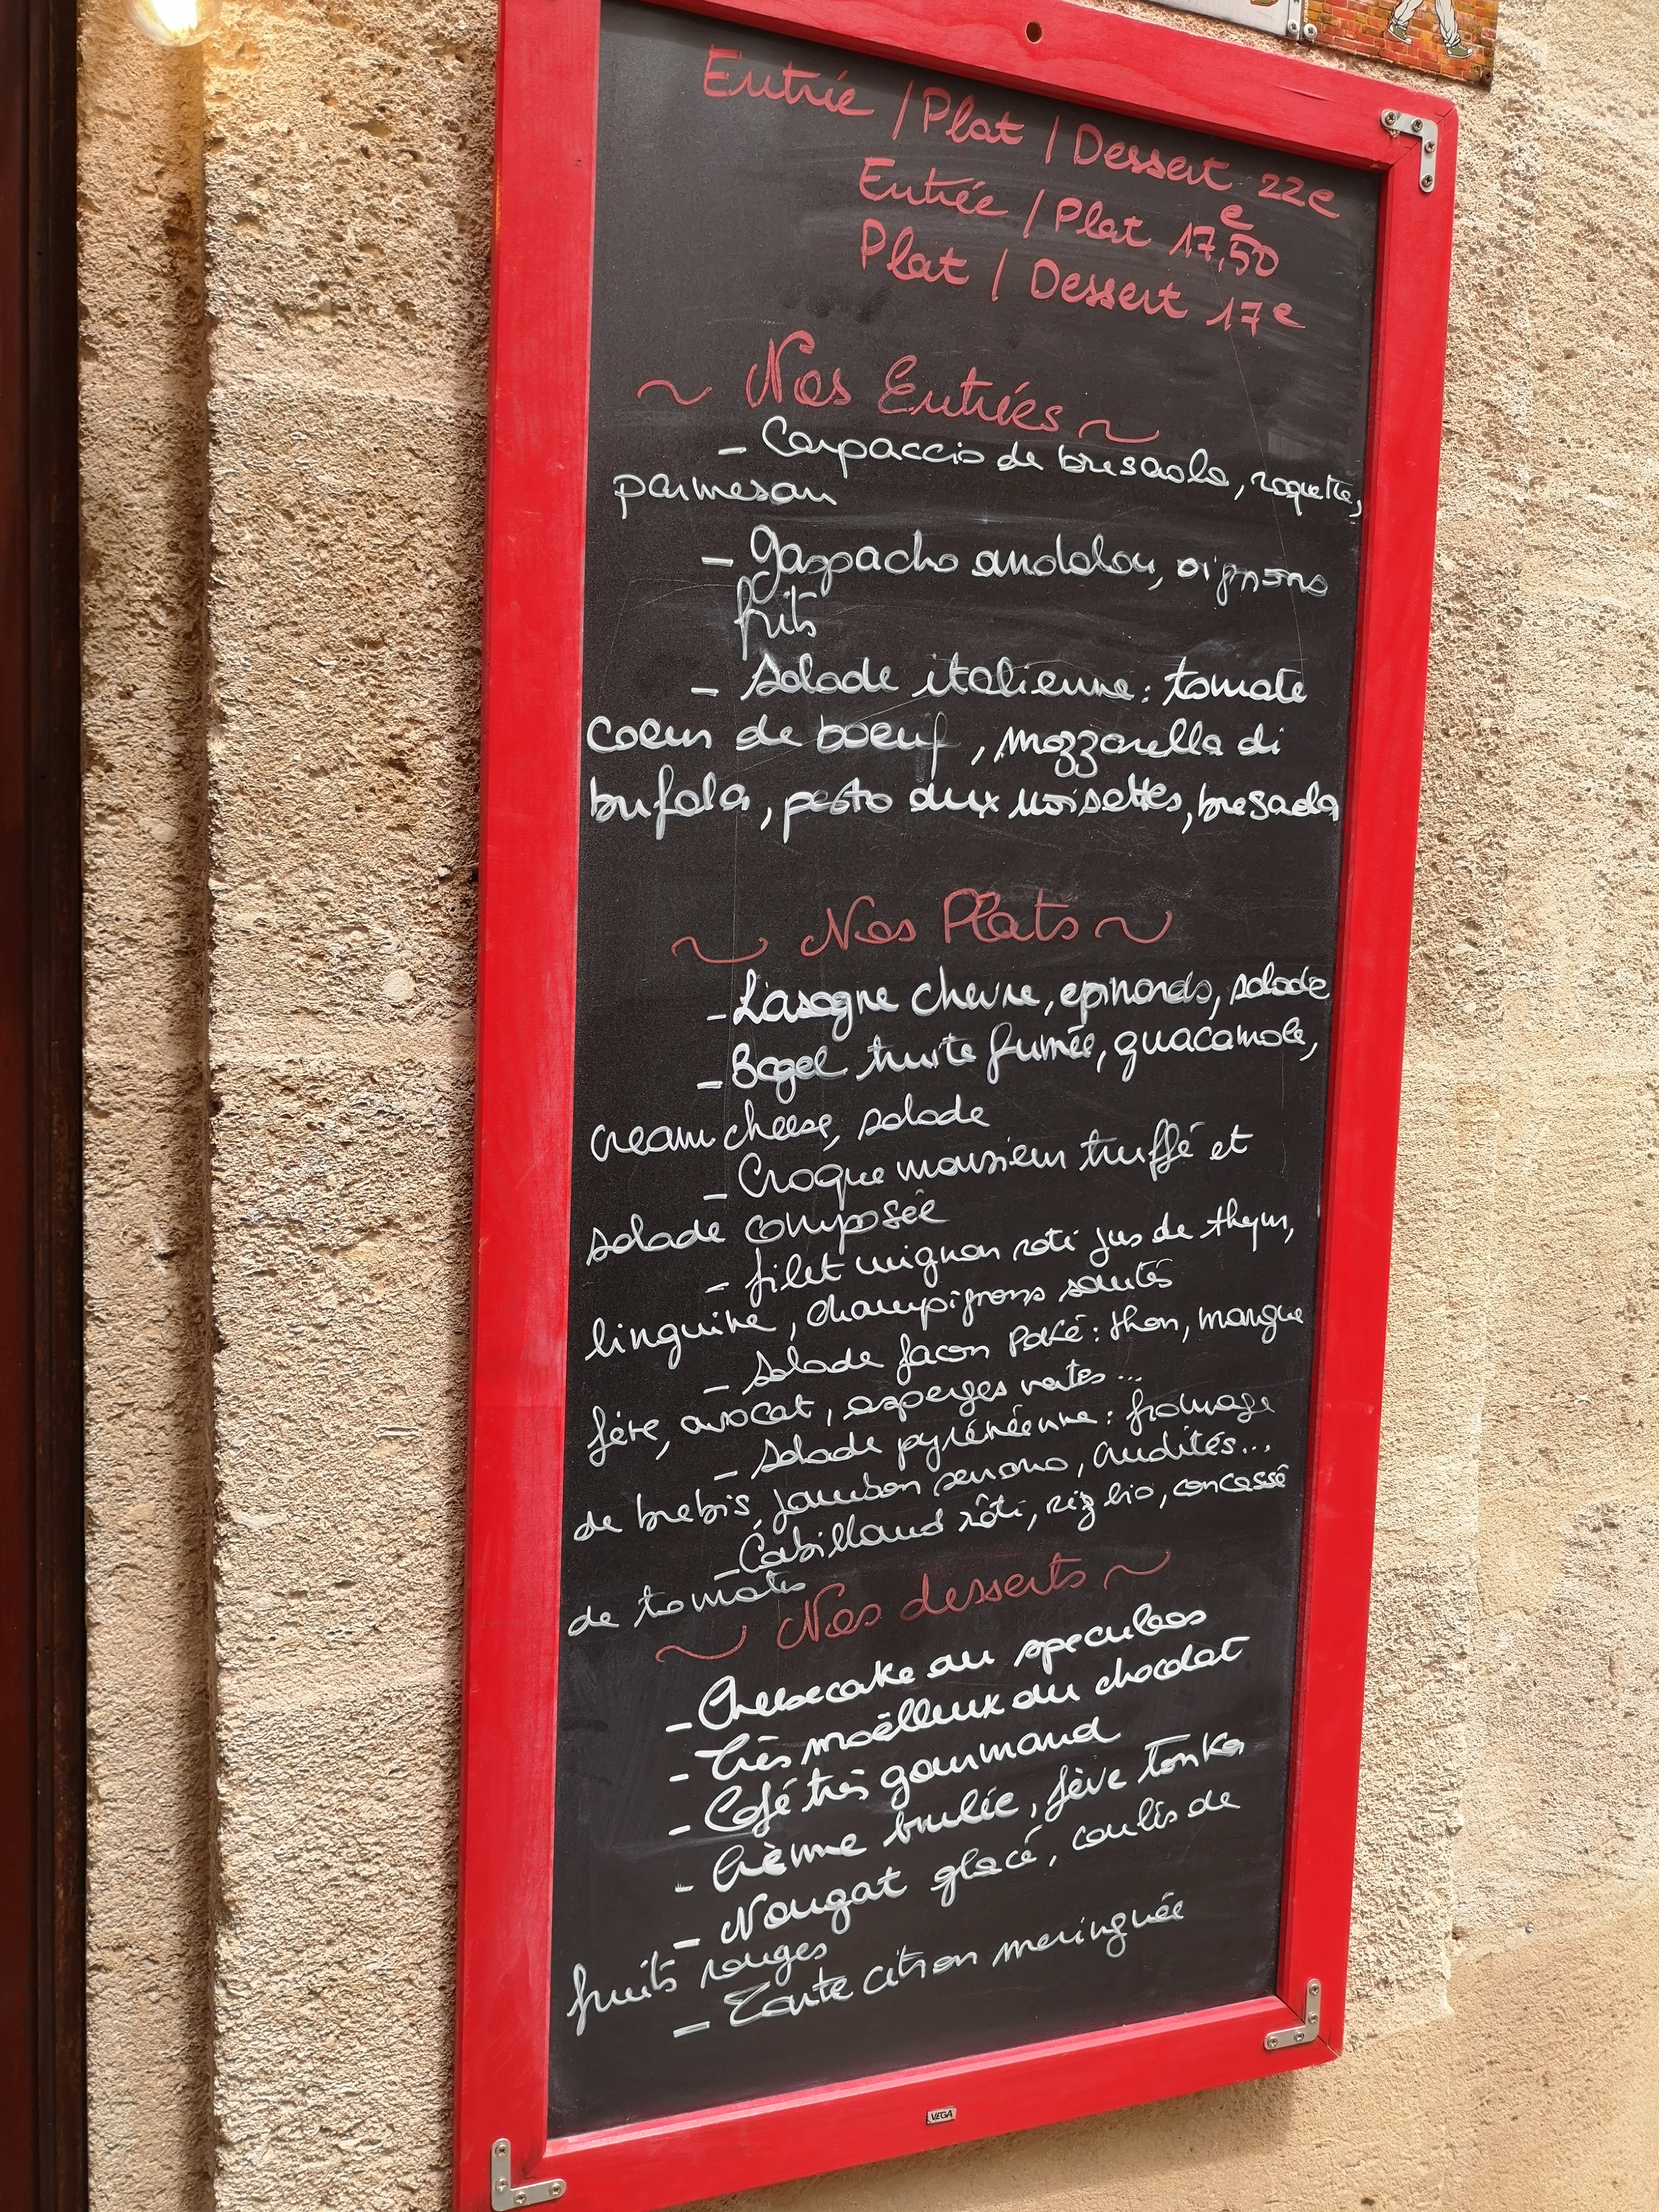 Entrée / Plat / Dessert 22e
Entrée / Plat 17,50e
Plat / Dessert 17e
~ Nos Entrées ~
- Carpaccio de bresaola, roquette,
parmesan
- gaspacho andalou, oignons
frits
- Salade italienne : tomate
coeur de boeuf, mozzarella di
bufala, pesto aux noisettes, bresaola
~ Nos Plats ~
- Lasagne chevre, epinards, salade
- Bagel truite fumée, guacamole,
cream cheese, salade
- Croque monsieur truffé et
salade composée
- filet mignon roti jus de thym,
linguine, champignons sautés
- Salade facon poké : thon, mangue
fève, avocat, asperges vertes ...
- Salade pyrénéenne : fromage
de brebis, jambon serrano, crudités...
- Cabillaud rôti, riz bio, concassé
de tomates
~ Nos desserts ~
- Cheesecake au speculoos
- Très moëlleux au chocolat
- Café très gourmand
- Crème brulée, fève tonka
- Nougat glacé, coulis de
fruits rouges
- Tarte citron meringuée
VEGA